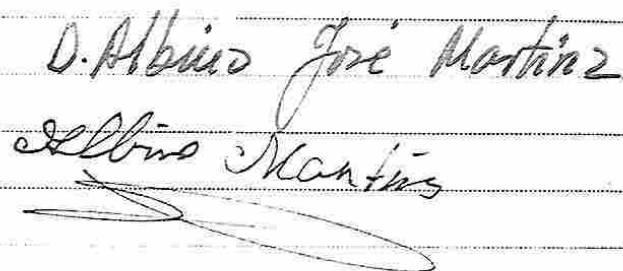 D. Albino José Martinz
Albino Martins